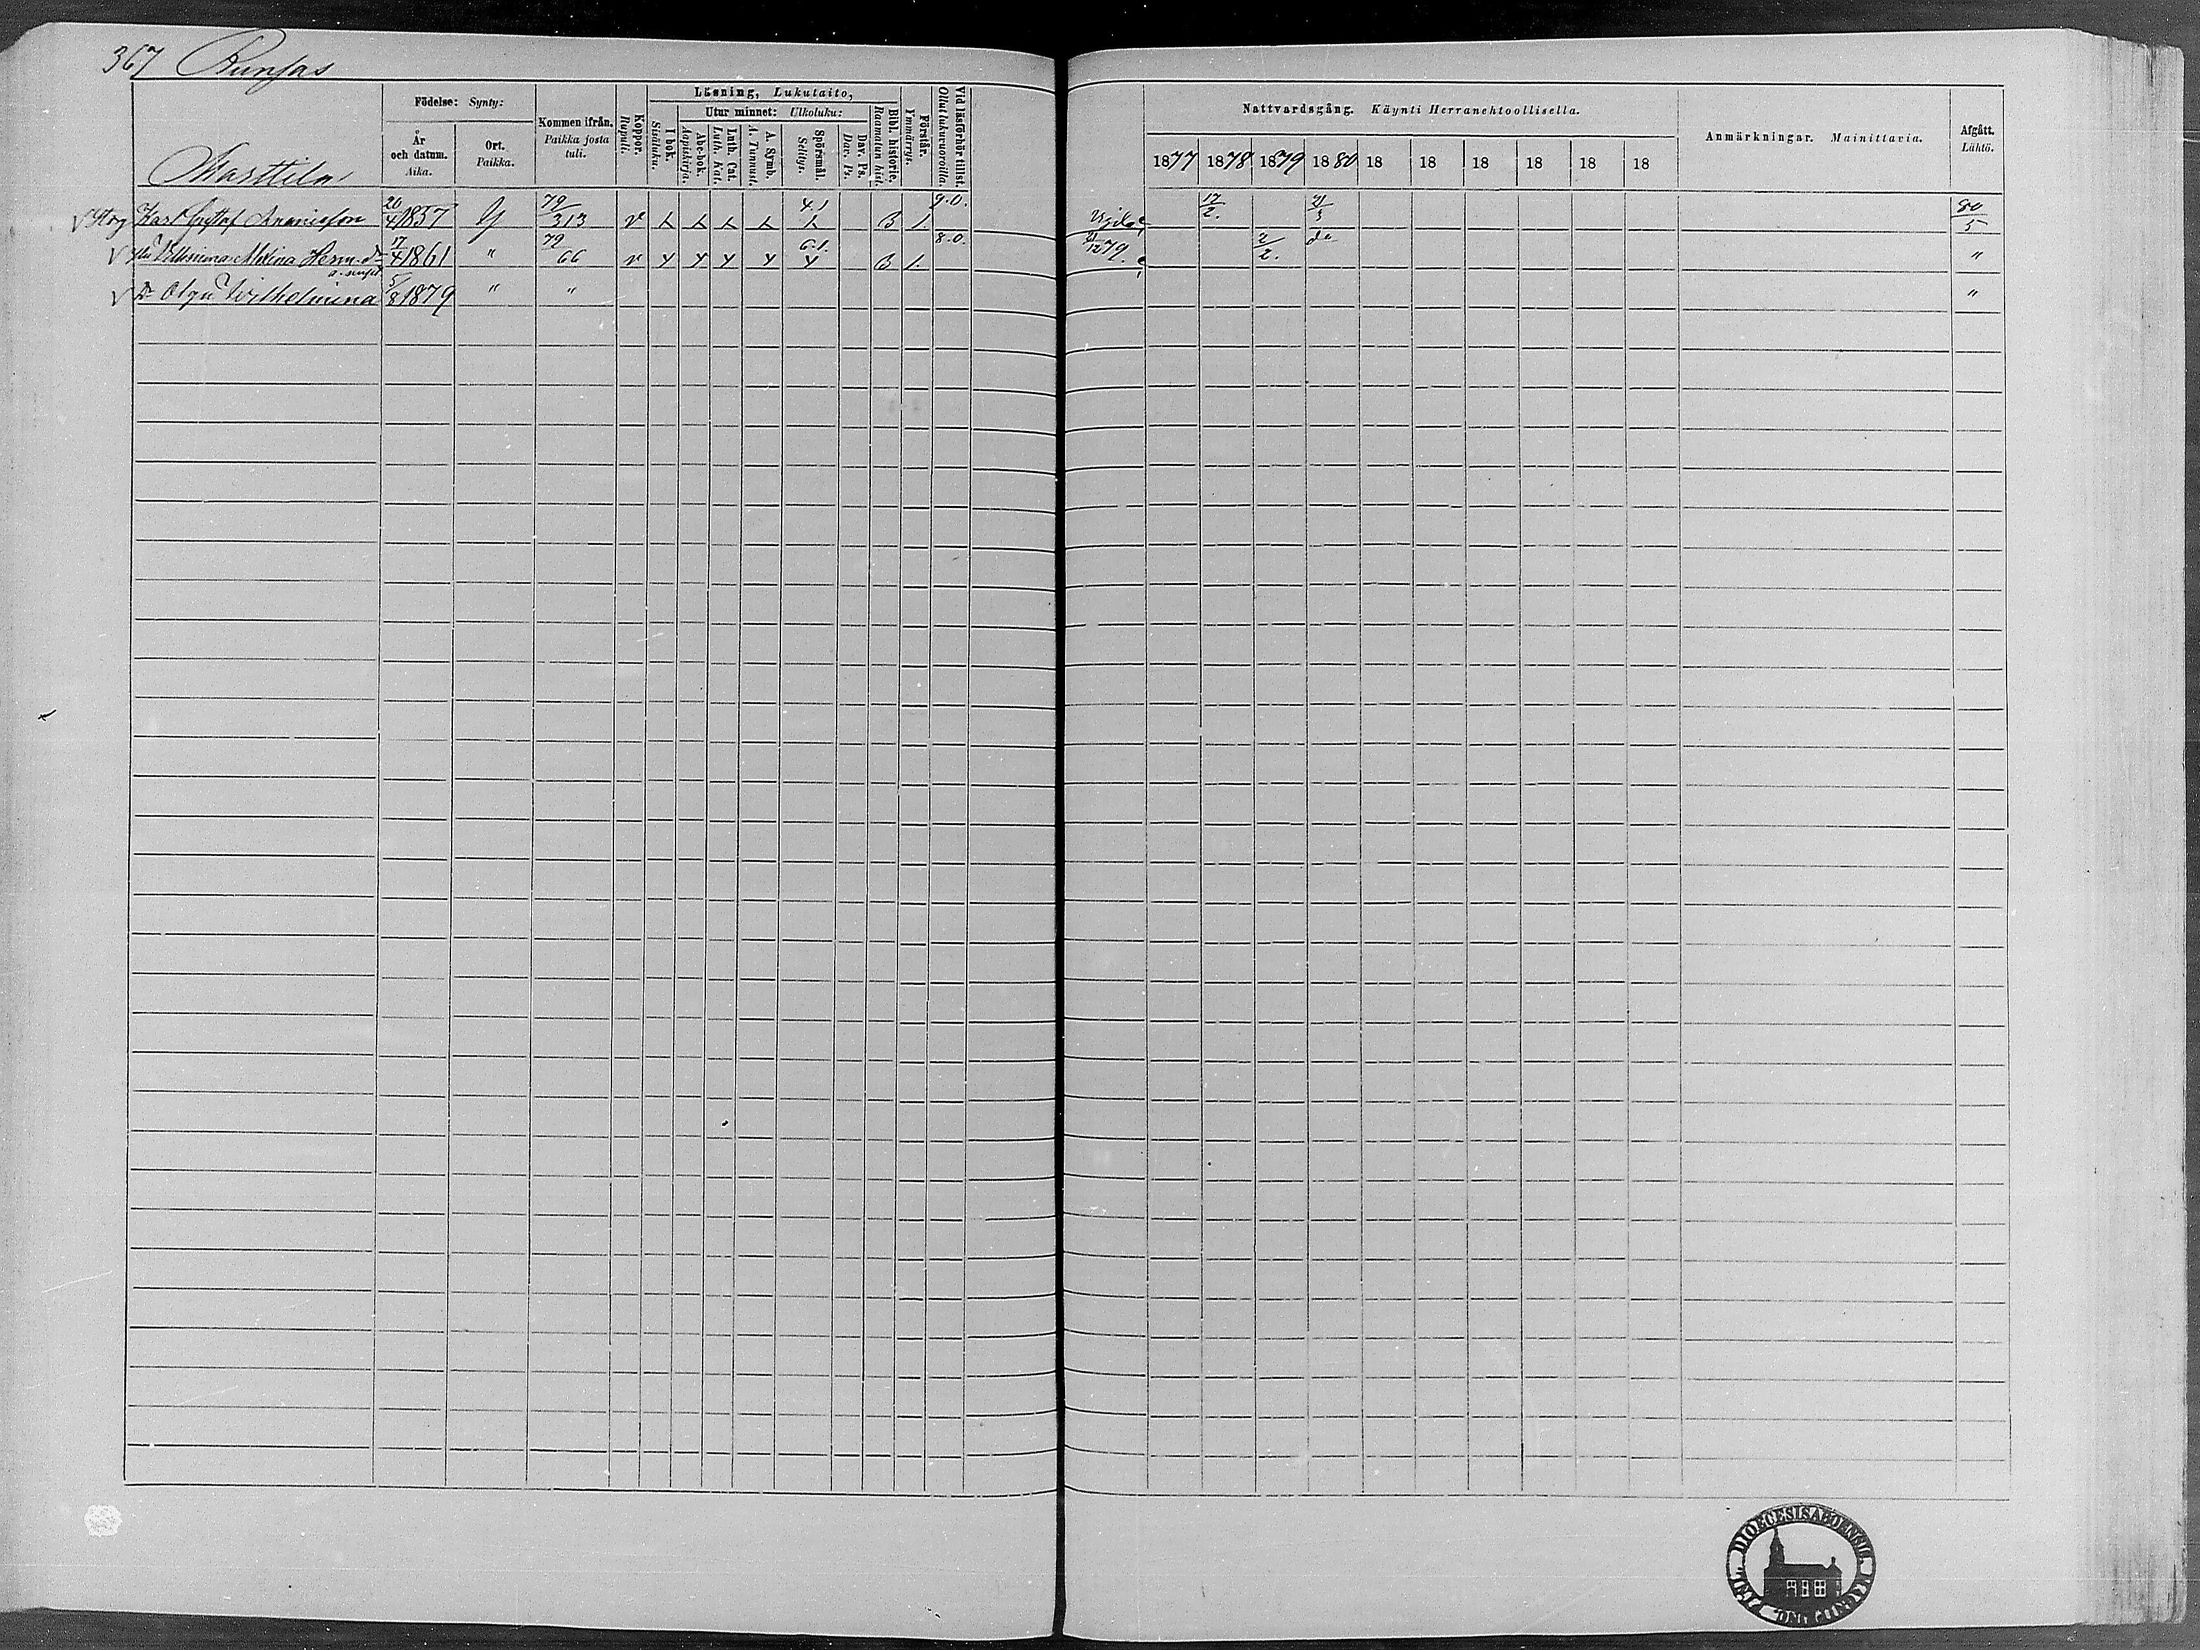 367 Runsas
Marttila
Födelse: Synty:
År och datum. Aika.
Ort. Paikka.
Kommen ifrån. Paikka josta tuli.
Koppor. Rupuli.
Läsning, Lukutaito,
I bok. Sisäluku.
Utur minnet: Ulkoluku:
Abc-bok. Aapiskirja.
Luth. Cat. Luth. Kat.
A. Symb. A. Tunnust.
Spörsmål. Selitys.
Dav. Ps. Dav. Ps.
Bibl. historie. Raamatun hist.
Förstår. Ymmärrys.
Vid läsförhör tillst. Ollut lukuvuoroilla.
Nattvardsgång. Käynti Herranehtoollisella.
1877 1878 1879 1880 18 18 18 18 18 18
Anmärkningar. Mainittavia.
Afgått. Lähtö.
Karl Gustaf 20/4 1857 79/313 v 4.1 B 1. 9.0. 17/2. 21/3 80/5
17/4 1861 " 79/66 v 6.1. B 1. 8.0. 79. 2/2. do "
Dr Olga Wilhelmina 5/8 1879 " " "